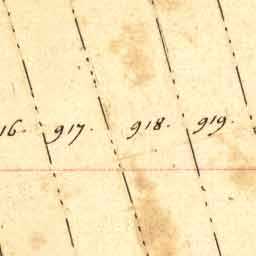 16. 917. 918. 919.